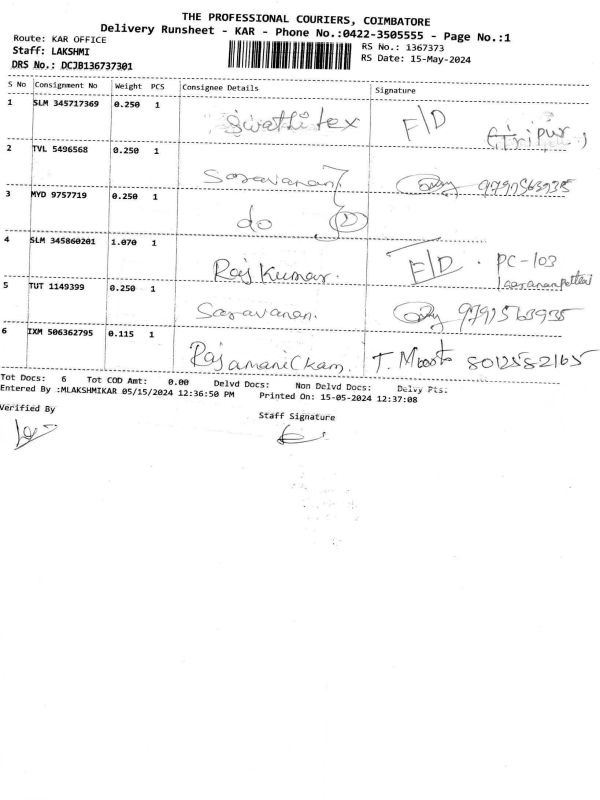 THE PROFESSIONAL COURIERS, COIMBATORE
Delivery Runsheet - KAR - Phone No.:0422-3505555 - Page No.:1
Route: KAR OFFICE
RS No.: 1367373
Staff: LAKSHMI
RS Date: 15-May-2024
DRS No.: DCJB136737301
S No Consignment No Weight PCS Consignee Details Signature
1 SLM 345717369 0.250 1 Swathi tex F/D (Tripur)
2 TVL 5496568 0.250 1 Saravanan
3 MYD 9757719 0.250 1 do 2
4 SLM 345860201 1.070 1 Raj Kumar. F/D . PC-103
5 TUT 1149399 0.250 1 Saravanan. 9791563935
6 IXM 506362795 0.115 1 Rajamanickam. T. 8012582165
Tot Docs: 6 Tot COD Amt: 0.00 Delvd Docs: Non Delvd Docs: Delvy Pts:
Entered By :MLAKSHMIKAR 05/15/2024 12:36:50 PM Printed On: 15-05-2024 12:37:08
Verified By
Staff Signature